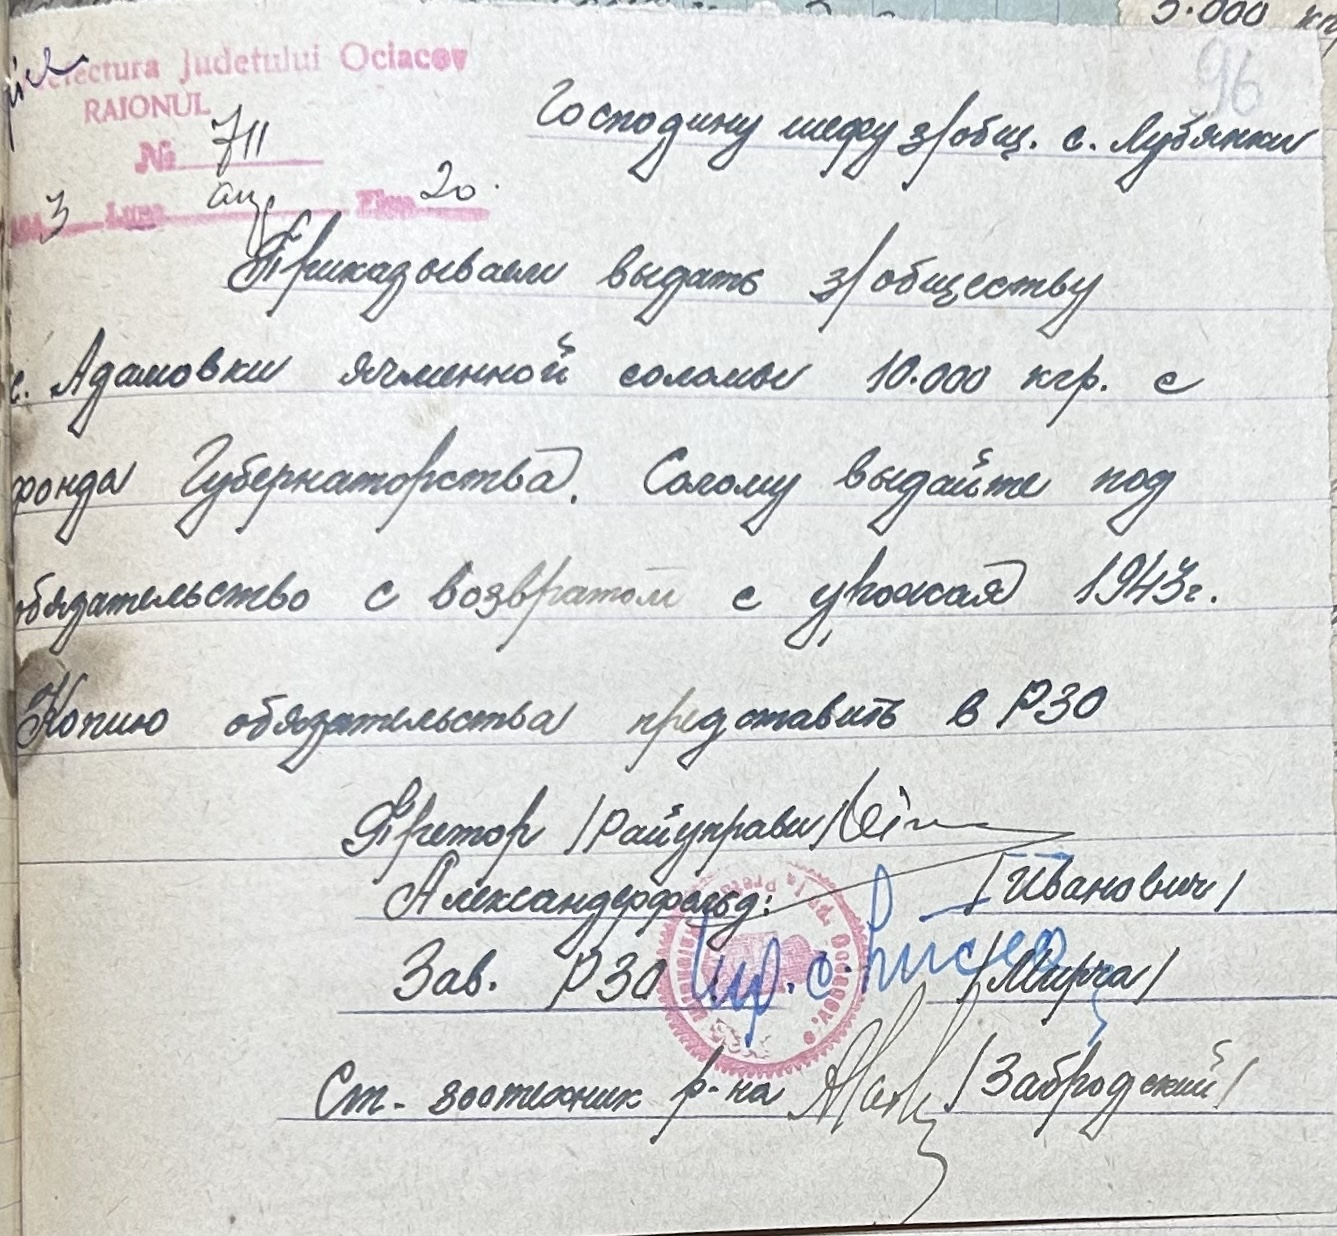 5.000 кгр
96
Prefectura Judetului Ociacov
RAIONUL
№ 711
3 Luna aug Ziua 20.
Господину шефу з/общ. с. Лубянки
Приказываем выдать з/обществу
с. Адамовки ячменной соломы 10.000 кгр. с
фонда Губернаторства. Солому выдайте под
обязательство с возвратом с урожая 1943г.
Копию обязательства представить в РЗО
Претор /Райуправы/
Александерфельд: /Иванович/
Зав. РЗО /Мирча/
Ст. зоотехник р-на /Забродский/